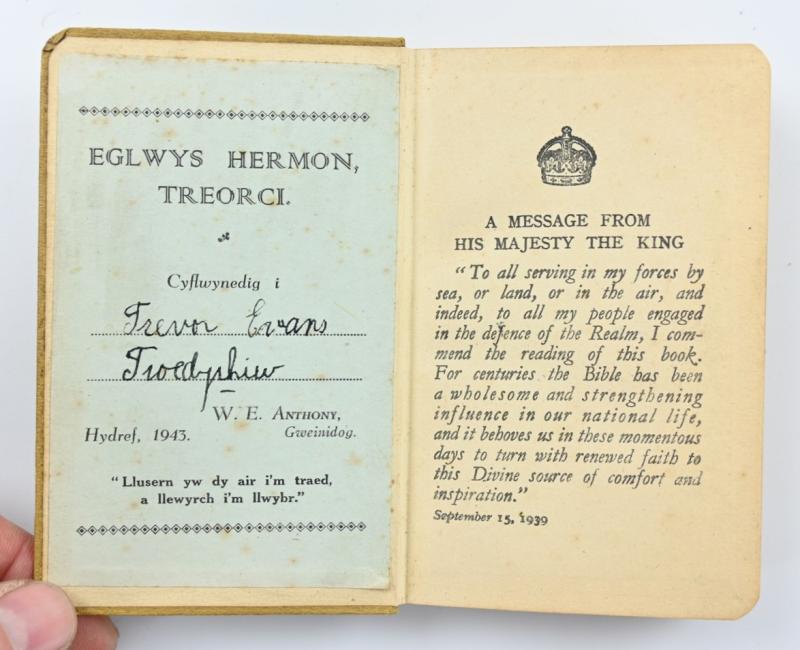 EGLWYS HERMON,
TREORCI.
Cyflwynedig i
Trevor Evans
Troedyrhiw
W. E. ANTHONY,
Hydref, 1943. Gweinidog.
"Llusern yw dy air i'm traed,
a llewyrch i'm llwybr."
A MESSAGE FROM
HIS MAJESTY THE KING
"To all serving in my forces by
sea, or land, or in the air, and
indeed, to all my people engaged
in the defence of the Realm, I com-
mend the reading of this book.
For centuries the Bible has been
a wholesome and strengthening
influence in our national life,
and it behoves us in these momentous
days to turn with renewed faith to
this Divine source of comfort and
inspiration."
September 15, 1939